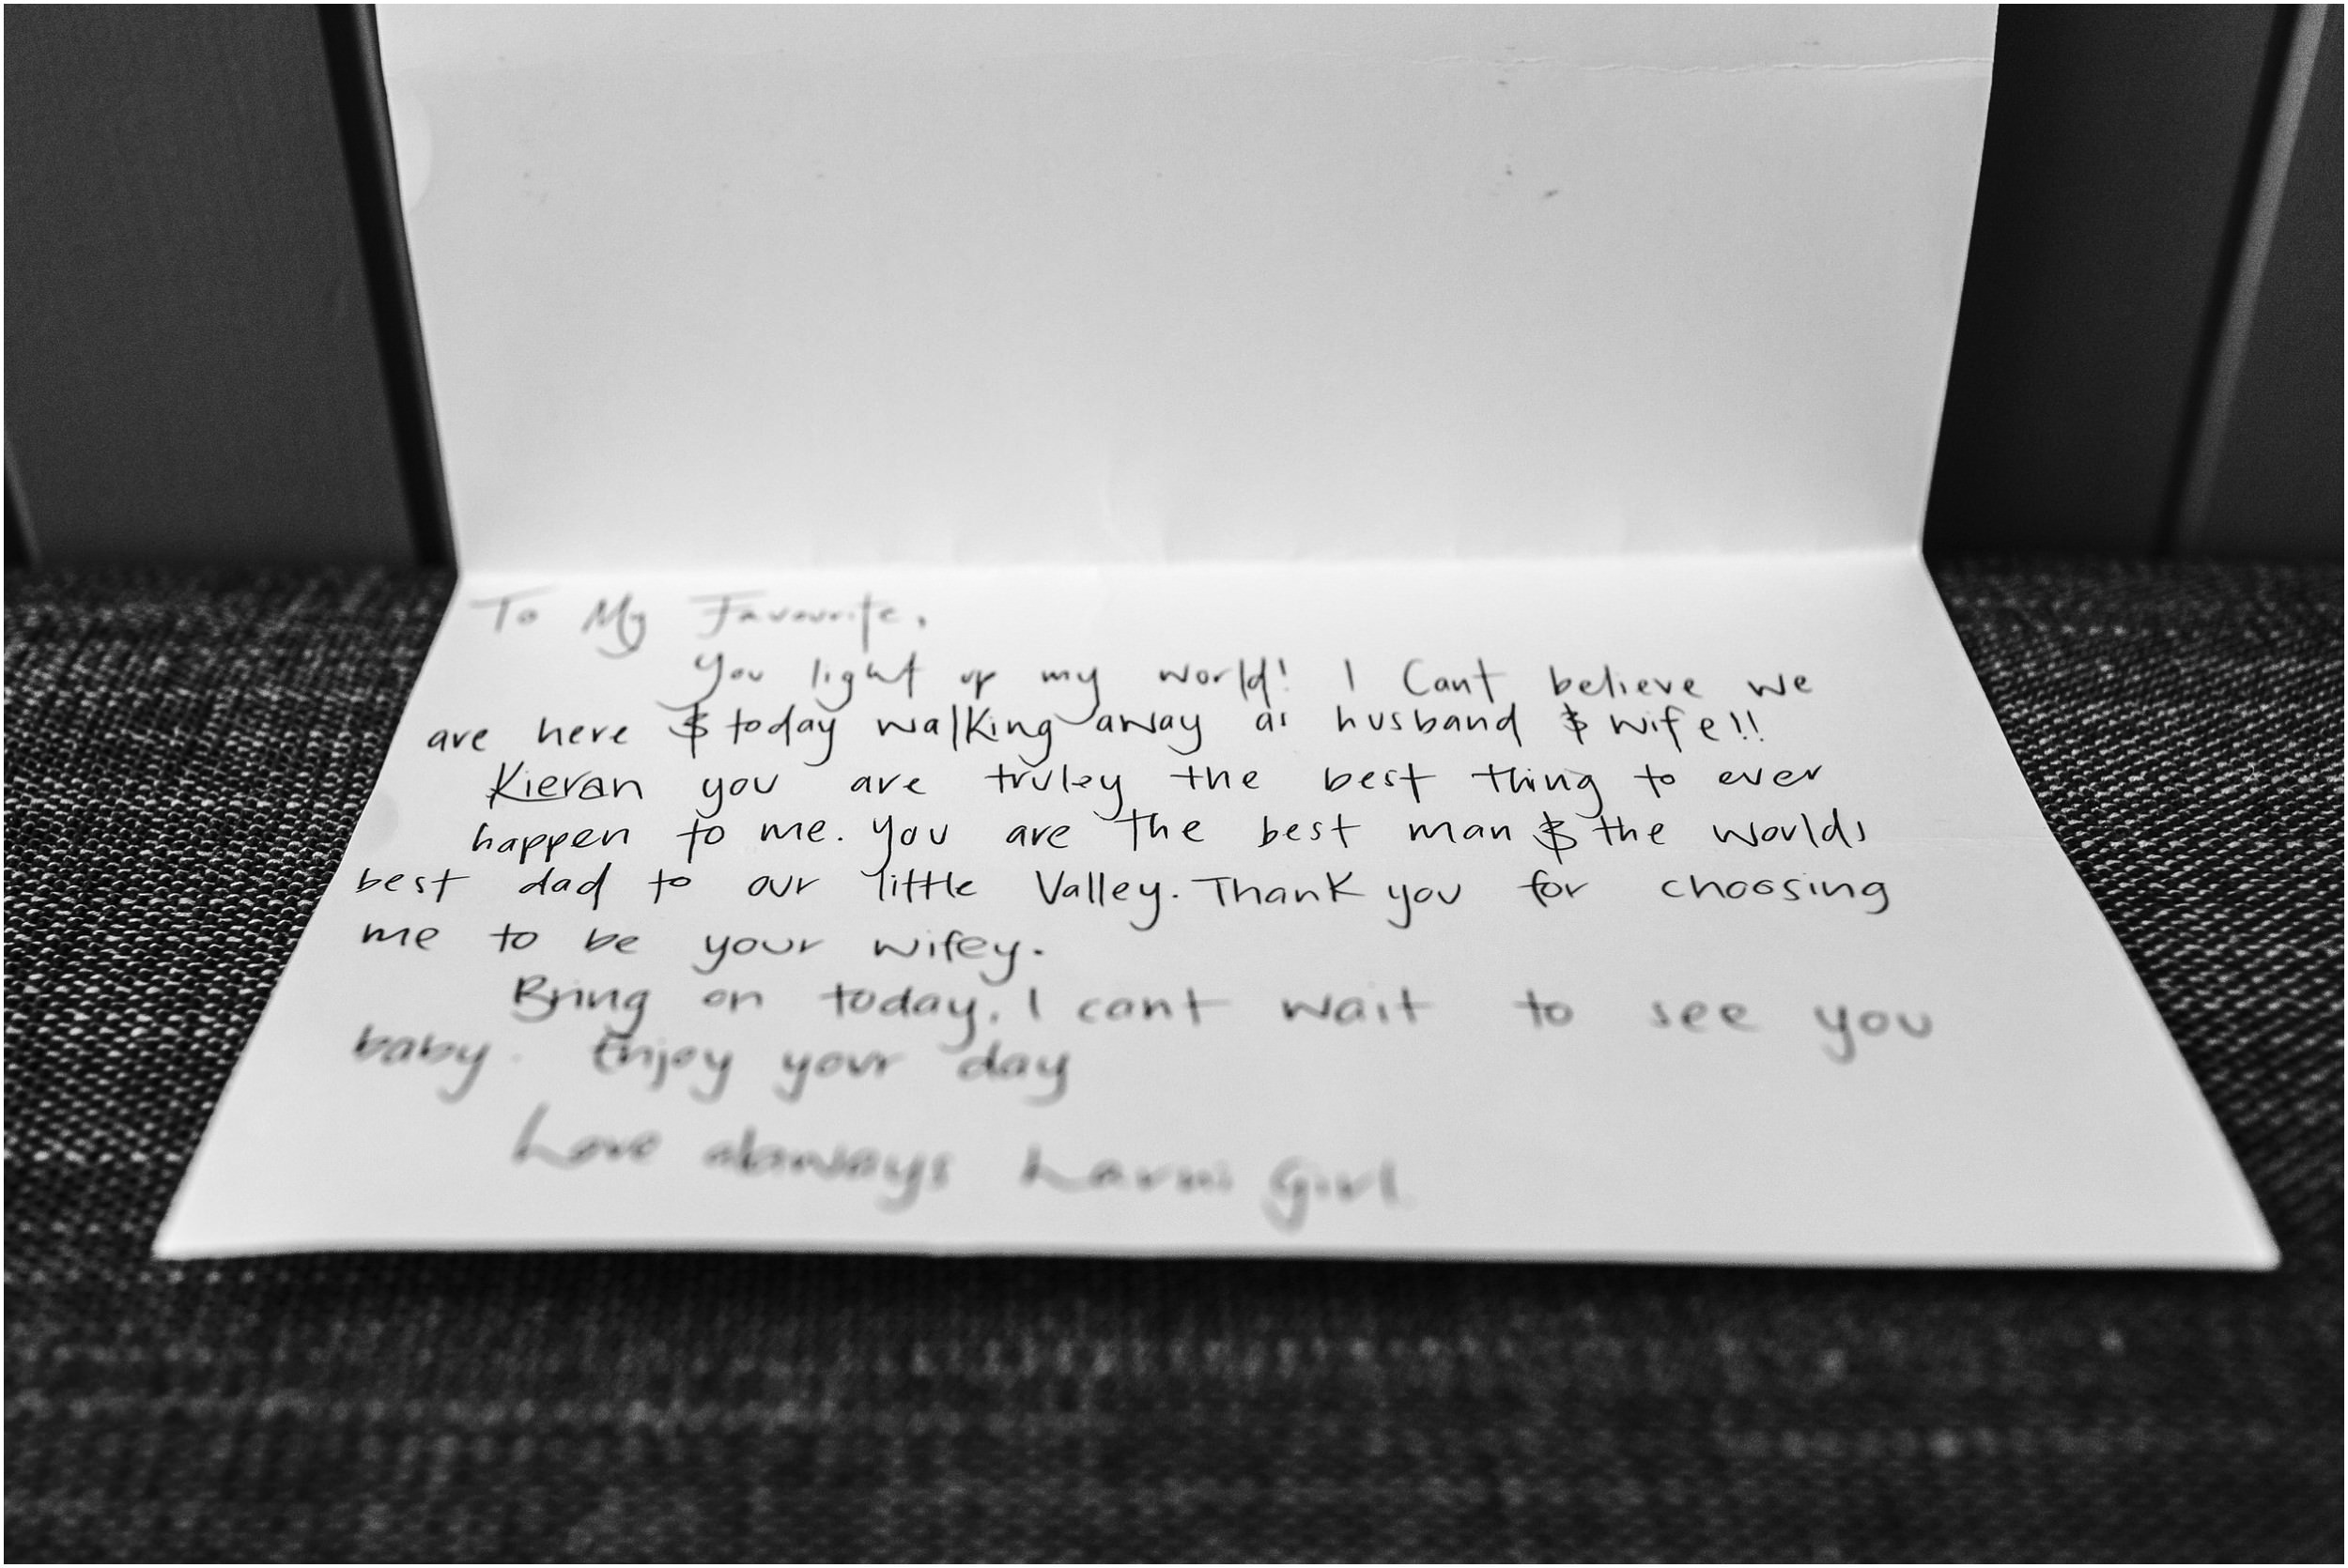 To My Favourite,
You light up my world! I Cant believe we
are here & today walking away as husband & wife!!
Kieran you are truley the best thing to ever
happen to me. You are the best man & the worlds
best dad to our little Valley. Thank you for choosing
me to be your wifey.
Bring on today. I cant wait to see you
baby. Enjoy your day
Love always Girl